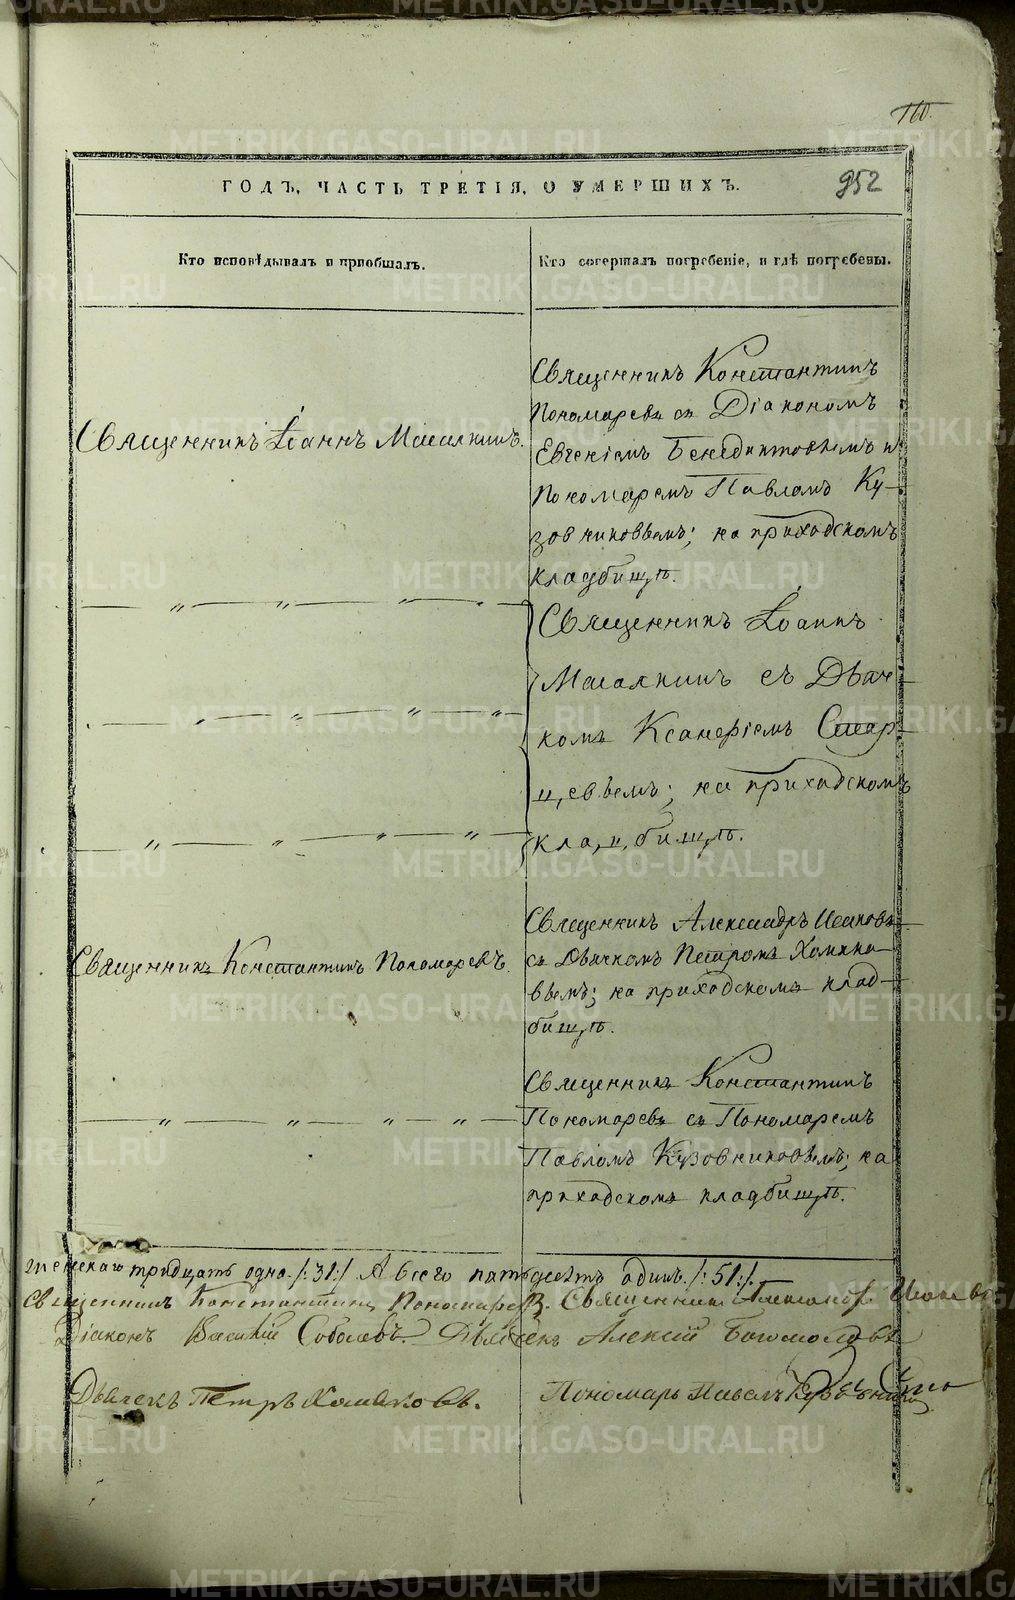 160.
ГОДЪ, ЧАСТЬ ТРЕТІЯ, О УМЕРШИХЪ.
952
Кто исповѣдывалъ и пріобщалъ.
Кто совершалъ погребеніе, и гдѣ погребены.
Священникъ Іоаннъ Масалкинъ.
Священникъ Константинъ
Пономаревъ съ Діакономъ
Евгеніемъ Бенедиктовымъ и
Пономаремъ Павломъ Ку-
зовниковымъ; на приходскомъ
кладбищѣ.
— „ — „ — „ —
Священникъ Іоаннъ
Масалкинъ съ Дьяч-
комъ Ксанфіемъ Стар-
цевымъ; на приходскомъ
кладбищѣ.
— „ — „ — „ — „ —
— „ — „ — „ — „ —
Священникъ Константинъ Пономаревъ.
Священникъ Александръ Исаковъ
съ Дьячкомъ Петромъ Хомяко-
вымъ; на приходскомъ клад-
бищѣ.
— „ — „ — „ — „ —
Священникъ Константинъ
Пономаревъ съ Пономаремъ
Павломъ Кузовниковымъ; на
приходскомъ кладбищѣ.
женскаго тридцать одна /:31:/ А всего пятьдесятъ одинъ /:51:/.
Священникъ Константинъ Пономаревъ. Священникъ Александръ Исаковъ
Діаконъ Василій Соболевъ Дьячекъ Алексій Богомоловъ
Дьячекъ Петръ Хомяковъ.
Пономарь Павелъ Кузовниковъ
METRIKI.GASO-URAL.RU